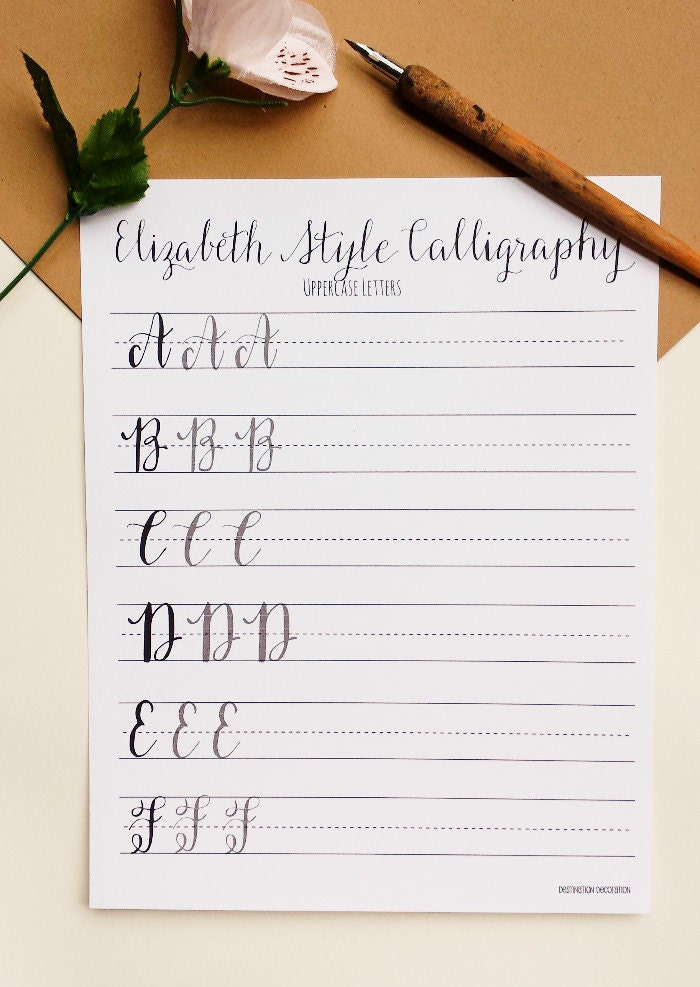 Elizabeth Style Calligraphy
UPPERCASE LETTERS
A A A
B B B
C C C
D D D
E E E
F F F
DESTINATION DECORATION